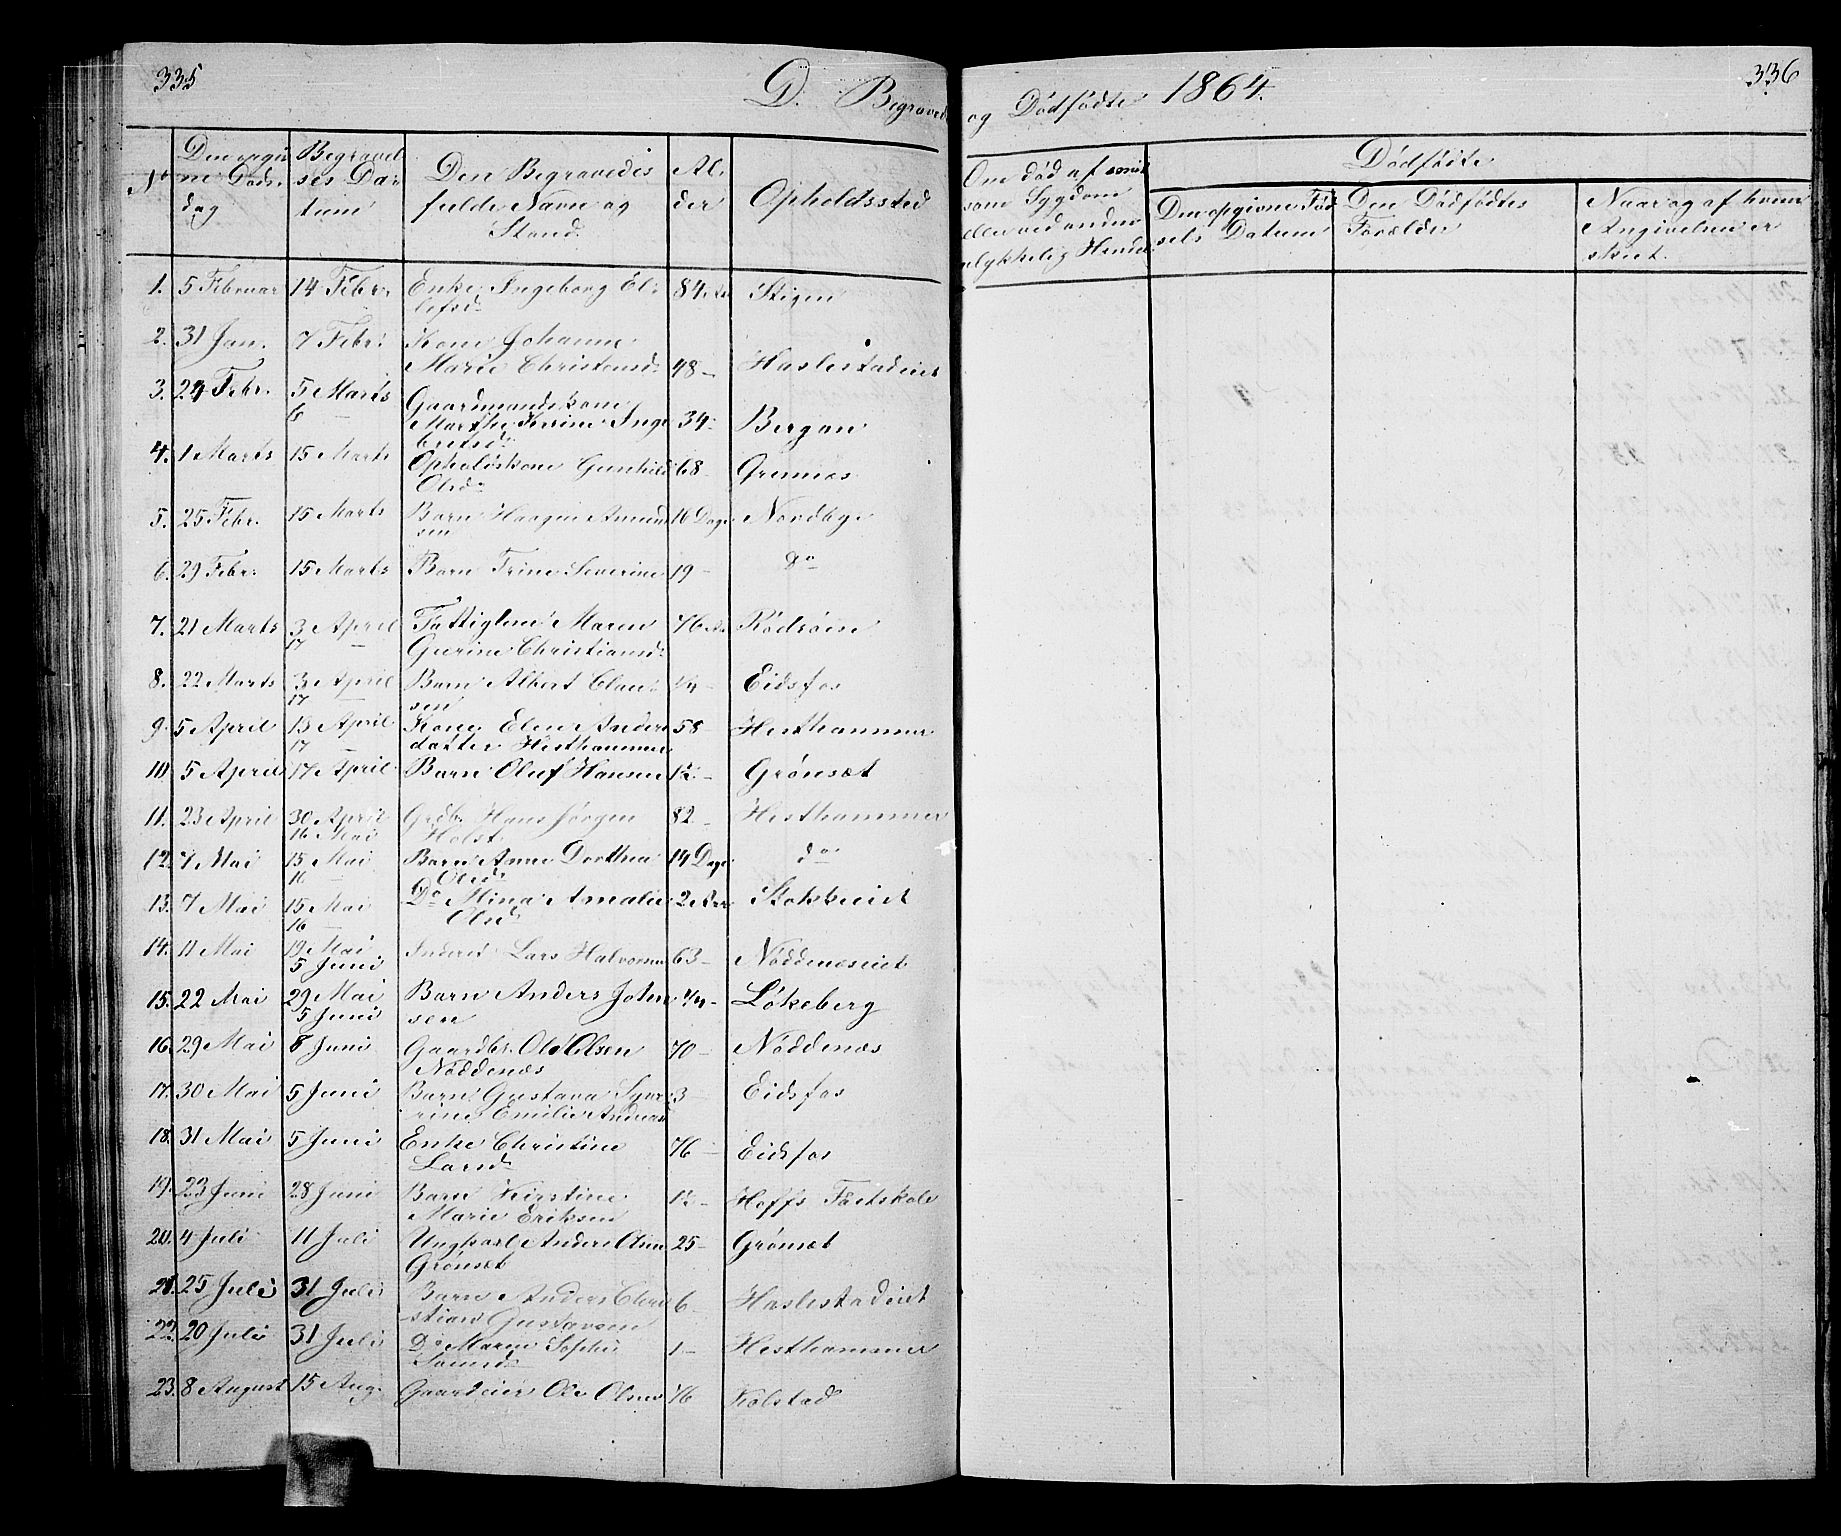 335
D. Begravede
og Dødfødte 1864.
336
No
Den opgivne Dødsdag
Begravelses Datum
Den Begravedes fulde Navn og Stand.
Alder
Opholdssted
Om død af smitsom Sygdom eller ved anden ulykkelig Hændelse
Dødfødte
Den opgivne Fødsels Datum
Den Dødfødtes Forældre
Naar og af hvem Angivelsen er skeet.
1. 5 Februar 14 Febr. Enke Ingeborg El- 84 Aar Stigen
lefsd.
2. 31 Jan. 7 Febr. Kone Johanne
Marie Christensd. 48 - Haslestadeiet
3. 24 Febr. 5 Marts Gaardmandskone
6 - Marthe Inge 34 - Bergan
bretsd.
4. 1 Marts 15 Marts Opholdskone Gunhild 68 - Grennes
Olsd.
5. 25 Febr. 15 Marts Barn Haagen Amund 16 Dage Nordbye
sen
6. 29 Febr. 15 Marts Barn Trine Severine 19 - do
7. 21 Marts 3 April Fattiglem Maren 76 Aar Rødsøien
17 - Gurine Christiansd.
8. 22 Marts 3 April Barn Albert Clau- 1/4 - Eidsfos
17 - sen
9. 5 April 13 April Kone Elen Anders 58 - Hesthammer
17 - datter Hesthammer
10. 5 April 17 April Barn Oluf Hansen 1½ - Grønsæt
11. 23 April 30 April Grdb. Hans Jørgen 82 - Hesthammer
16 Mai Holst
12. 7 Mai 15 Mai Barn Anne Dorthea 14 Dage do
16 - Olsd.
13. 7 Mai 15 Mai Do Mina Amalie 2 Aar Stokkeeiet
16 - Olsd.
14. 11 Mai 19 Mai Inderst Lars Halvorsen 63 - Nøddeneseiet
5 Juni
15. 22 Mai 29 Mai Barn Anders Johan 1/4 - Løkeberg
5 Juni sen
16. 29 Mai 8 Juni Gaardbr. Ole Olsen 70 - Nøddenæs
Nøddenæs
17. 30 Mai 5 Juni Barn Gustava 3 - Eidsfos
rine Emilie Andreas
18. 31 Mai 5 Juni Enke Christine 76 - Eidsfos
Larsd.
19. 23 Juni 28 Juni Barn Kirstine 1½ - Hoffs Fastskole
Marie Eriksen
20. 4 Juli 11 Juli Ungkarl Anders Olsen 25 - Grønsæt
Grønsæt
21. 25 Juli 31 Juli Barn Anders Chri 6 - Haslestadeiet
stian Gustavsen
22. 20 Juli 31 Juli Do Maren Sophie 1 - Hesthammer
23. 8 August 15 Aug. Gaardeier Ole Olsen 76 Kolstad